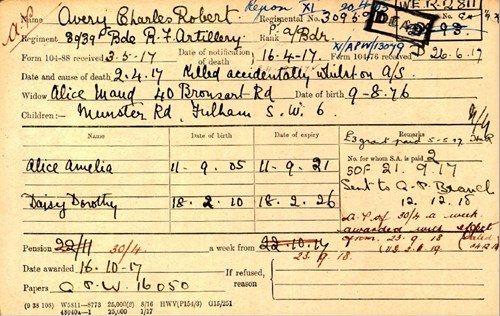 W.E.R. 2811
Avery Charles Robert
Regimental No.
DEAD
Regiment
R. F. Artillery
Rank
A/Bdr.
Form 104-88 received
3-5-17
Date of notification of death,
16.4.17.
Form 104-76 received
26.6.17
Date and cause of death
2.4.17 Killed accidentally whilst on A/S
Widow
Alice Maud 40 Bronsart Rd
Date of birth
9-8-76
Children:-
Munster Rd, Fulham S.W. 6
Name
Date of birth
Remarks
£3 grant paid
No. for whom S.A. is paid
2
Alice Amelia
11-9.05
11-9.21
SOF 21.9.17
Sent to A.P. Branch
12.12.18
Daisy Dorothy
18.2.10
18.2.26
A.P. of 30/4 a week
awarded with effect
from 23-9-18
Pension
22/11
30/4
a week from
22.10.17
23.9.18.
Date awarded
16-10-17
If refused, reason
Papers
16050
(9 38 198) W5811—8773 25,000(2) 8/16 HWV(P154/3) G15/251
25,000 1/17